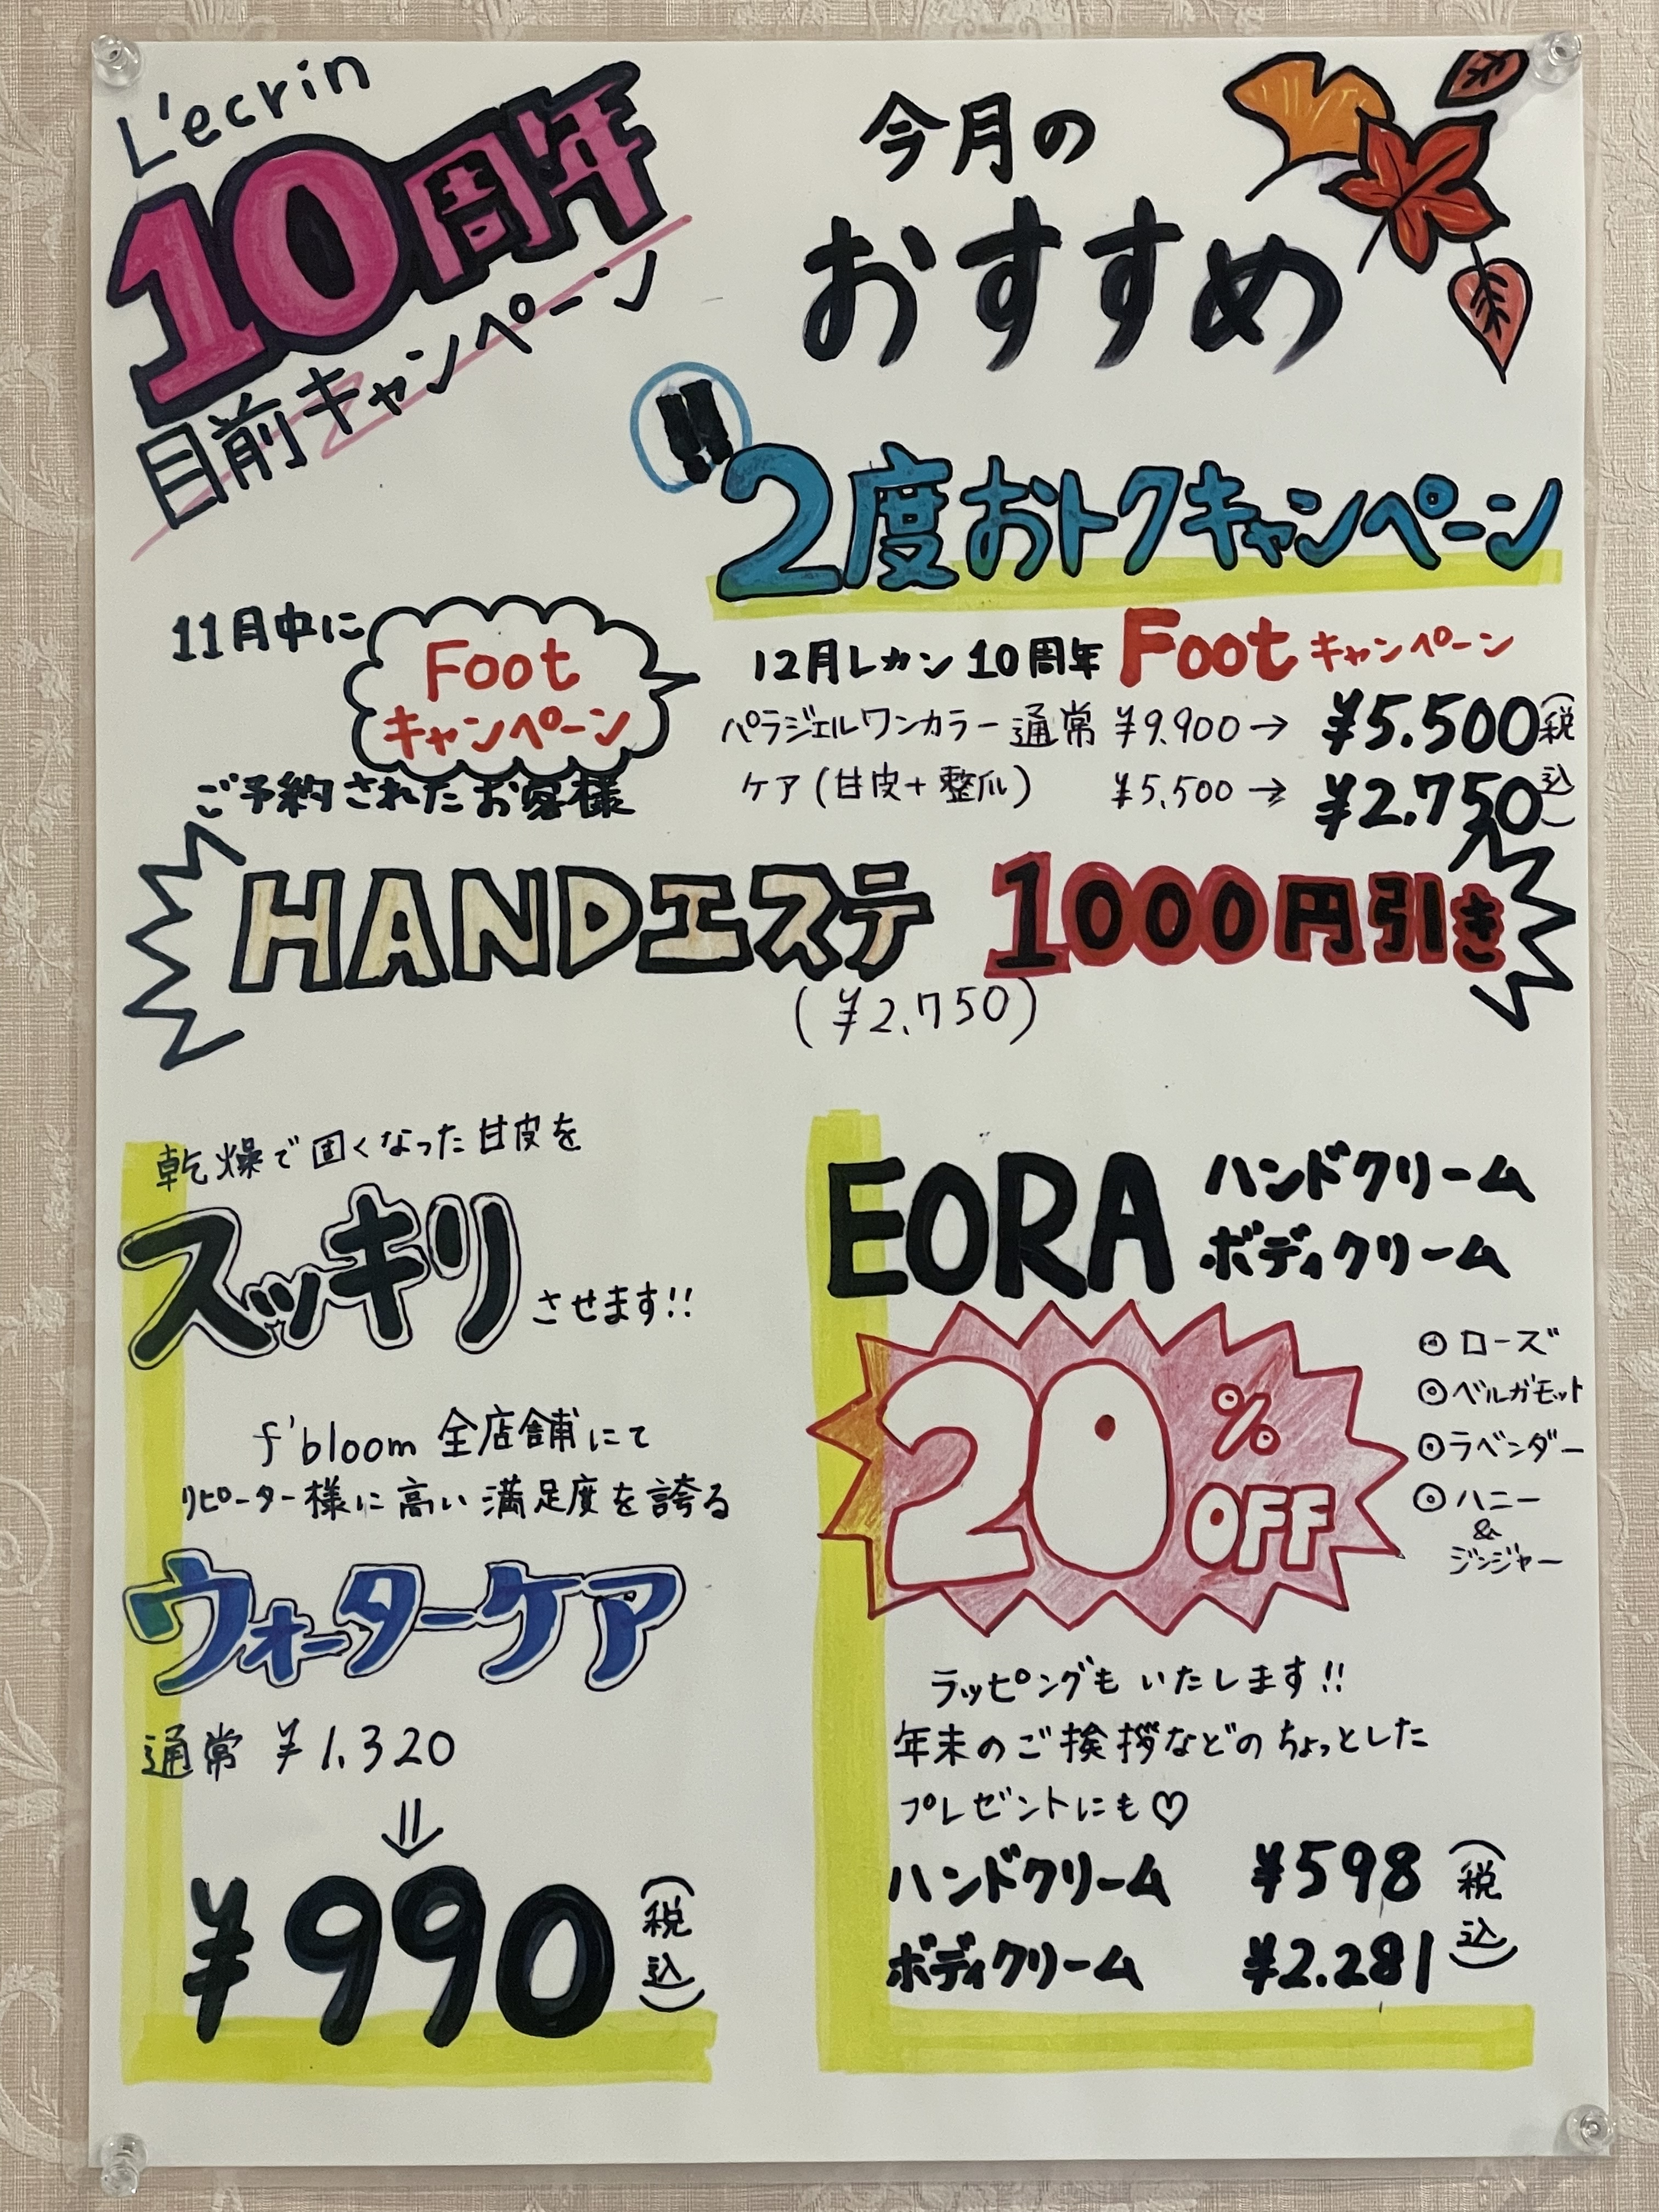 L'ecrin
10周年
目前キャンペーン
今月の
おすすめ
!!
2度おトクキャンペーン
11月中に
Foot
キャンペーン
ご予約されたお客様
12月レカン10周年 Foot キャンペーン
パラジェルワンカラー 通常 ¥9.900→ ¥5.500(税
ケア(甘皮+整爪) ¥5.500→ ¥2.750込)
HANDエステ 1000円引き
(¥2.750)
乾燥で固くなった甘皮を
スッキリ
させます!!
f'bloom 全店舗にて
リピーター様に高い満足度を誇る
ウォーターケア
通常 ¥1.320
⇓
¥990(税込)
EORA ハンドクリーム
ボディクリーム
20%
OFF
◎ローズ
◎ベルガモット
◎ラベンダー
◎ハニー
&
ジンジャー
ラッピングもいたします!!
年末のご挨拶などのちょっとした
プレゼントにも♡
ハンドクリーム ¥598(税
ボディクリーム ¥2.281込)